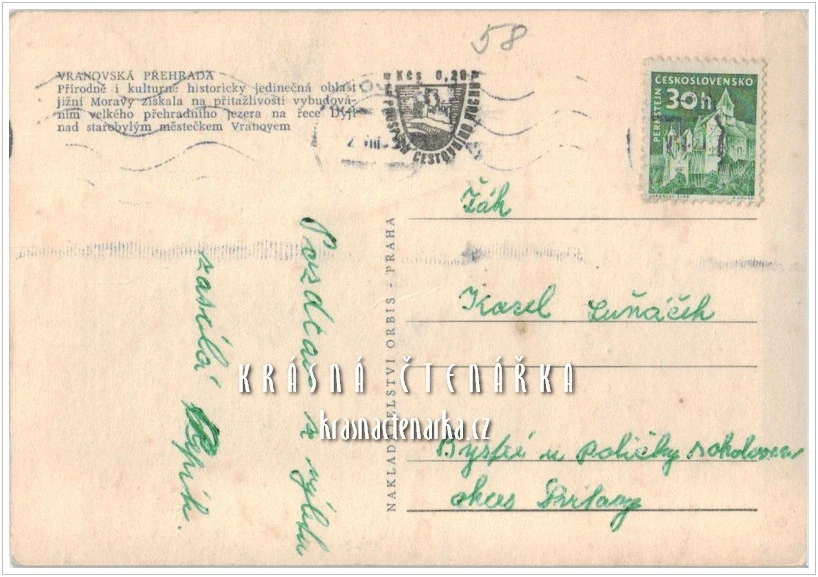 58
VRANOVSKÁ PŘEHRADA
Přírodně i kulturně historicky jedinečná oblast
jižní Moravy získala na přitažlivosti vybudová-
ním velkého přehradního jezera na řece Dyji
nad starobylým městečkem Vranovem
Kčs 0,20
CESTOVNÍHO RUCHU
ČESKOSLOVENSKO
30h
PERNŠTEJN
Žák
Karel Luňáček
Bystré u Poličky
okres Svitavy
Pozdrav z výletu
zasílá
NAKLADATELSTVÍ ORBIS - PRAHA
KRÁSNÁ ČTENÁŘKA
krasnactenarka.cz